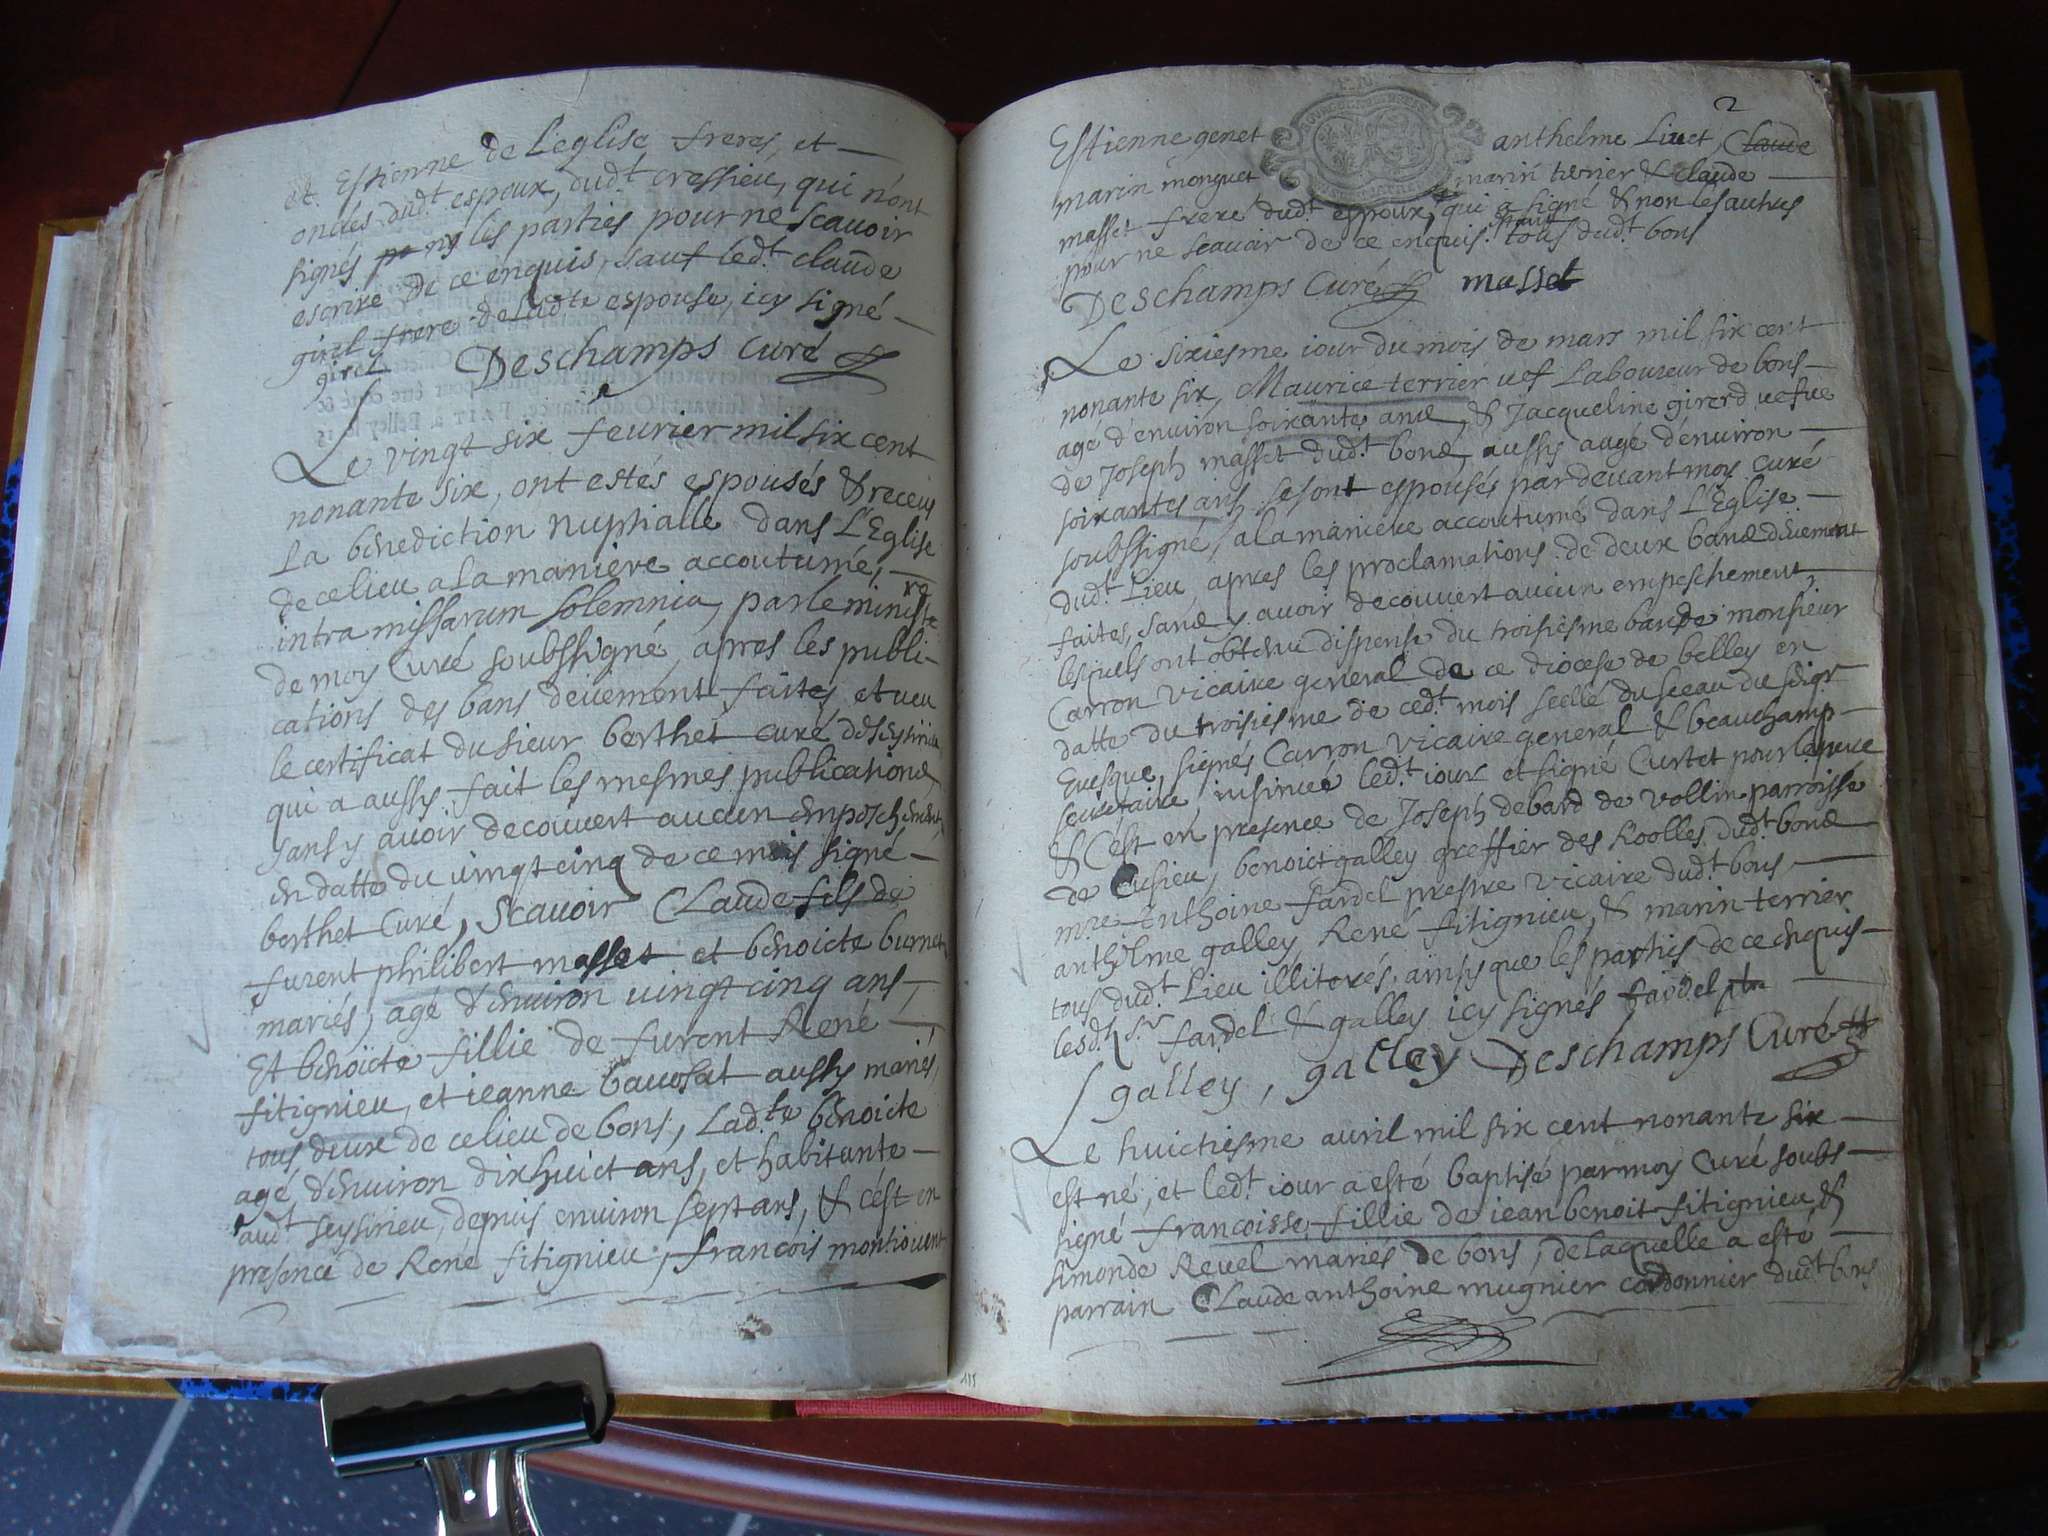 et Estienne de l'eglise freres, et
oncles dud.t espoux, dud.t cressieu, qui n'ont
signés ny les parties pour ne scavoir
escrire de ce enquis, sauf led.t claude
girel frere de lad.te espouse, icy signé
girel Deschamps Curé
Le vingt six feurier mil six cent
nonante six, ont estés espousés & receu
La bénediction nuptialle dans L'Eglise
de ce lieu a la maniere accoutumé,
intra missarum solemnia, par le ministre
de moy Curé soubssigné, apres les publi-
cations des bans deüement faites, et veu
le certificat du sieur berthet curé de seysirieu
qui a aussy fait les mesmes publications
sans y avoir decouvert aucun empeschement,
en datte du vingt cinq de ce mois signé
berthet Curé, Scavoir Claude fils de
furent philibert masset et benoicte burnet
mariés, agé d'environ vingt cinq ans,
Et benoicte fillie de furent René
fitignieu, et ieanne bavosat aussy mariés,
tous deux de ce lieu de bons, Lad.te benoicte
agé d'environ dixhuict ans, et habitante
aud.t seysirieu, depuis environ sept ans, & c'est en
presence de René fitignieu, francois montiouent
2
Estienne genet anthelme Liuet, Claude
marin monguet marin terrier & claude
masset frere dud.t espoux, qui a signé & non les autres
pour ne scavoir de ce enquis. tous dud.t bons
Deschamps Curé masset
Le sixiesme iour du mois de mars mil six cent
nonante six, Maurice terrier vef Laboureur de bons
agé d'environ soixante ans, & Jacqueline girerd vefve
de Joseph masset dud.t bons, aussy aagé d'environ
soixantes ans, se sont espousés pardevant moy curé
soubssigné, a la maniere accoutumé dans L'Eglise
dud.t Lieu, apres les proclamations de deux bans düement
faites, sans y avoir decouvert aucun empeschement,
lesquels ont obtenu dispense du troisiesme ban de monsieur
Carron vicaire general de ce diocese de belley en
datte du troisiesme de ced.t mois scellé du sceau du seigr
Evesque, signés Carron vicaire general & beauchamp
secretaire insinué led.t iour et signé Curtet
& C'est en presence de Joseph debard de vollin parroisse
de Cusieu, benoict galley greffier des Roolles dud.t bons
m.re Anthoine fardel prestre vicaire dud.t bons
anthelme galley, René fitignieu, & marin terrier
tous dud.t Lieu illiterés, ainsy que les parties de ce enquis
lesd.s S.rs fardel & galley icy signés fardel ptre
galley, galley Deschamps Curé
Le huictiesme avril mil six cent nonante six
est né, et led.t iour a esté baptisé par moy Curé soubs-
signé francoisse fillie de iean benoit fitignieu, &
simonde Revel mariés de bons, de laquelle a esté
parrain Claude anthoine mugnier cordonnier dud.t bons
115